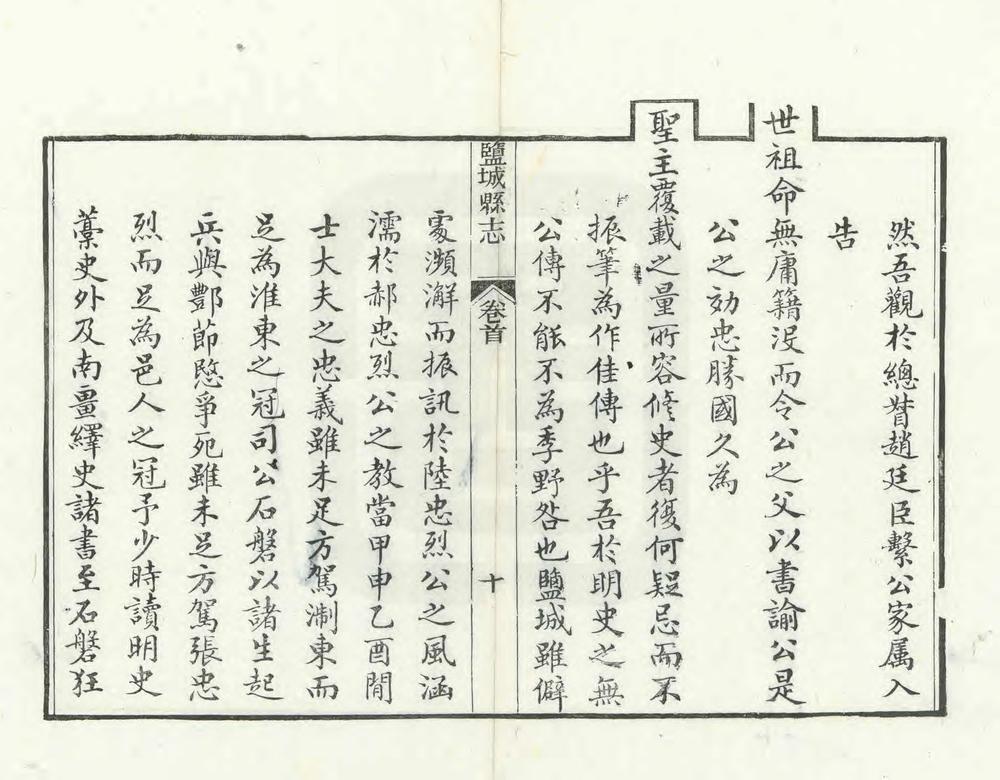 然吾觀於總督趙廷臣繫公家属入
告
世祖命無庸籍没而令公之父以書諭公是
公之効忠勝國久為
聖主覆載之量所容修史者復何疑忌而不
振筆為作佳傳也乎吾於明史之無
公傳不能不為季野咎也鹽城雖僻
鹽城縣志
卷首
十
處瀕澥而振訊於陸忠烈公之風涵
濡於郝忠烈公之教當甲申乙酉閒
士大夫之忠義雖未足方駕淛東而
足為淮東之冠司公石磐以諸生起
兵與酆節愍爭死雖未足方駕張忠
烈而足為邑人之冠予少時讀明史
藁史外及南畺繹史諸書至石磐狂